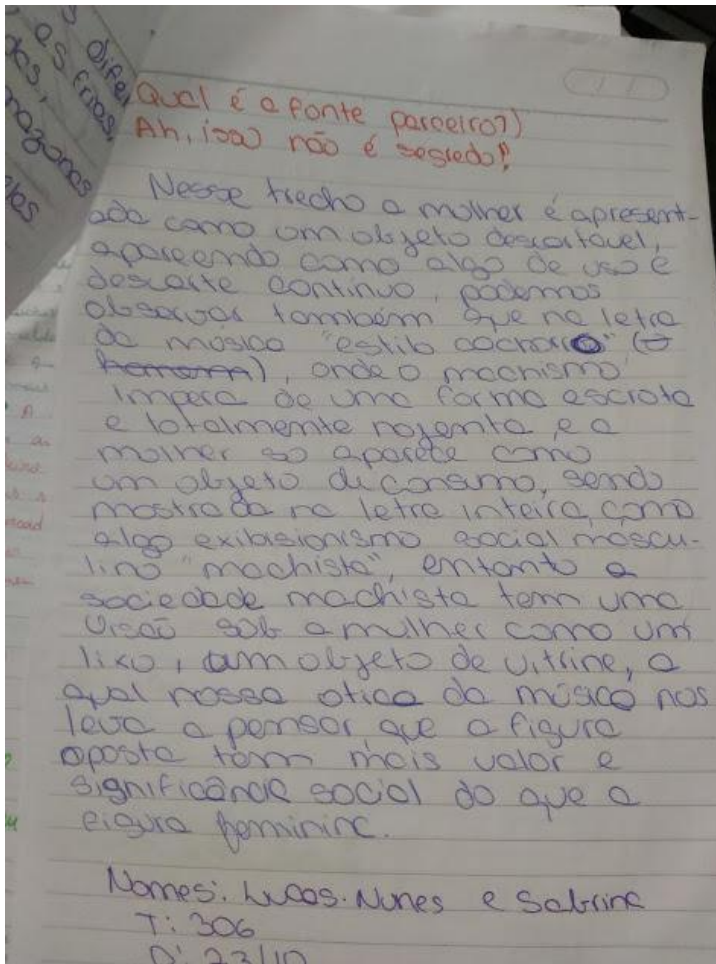 s difer
as frias,
das,
mazonas
elas
Qual é a fonte parceiro?)
Ah, isso não é segredo!
Nesse trecho a mulher é apresent-
ada como um objeto descartavel,
aparecendo como algo de uso e
descarte contínuo, podemos
observar também que na letra
da música "estilo cachorro" (o
homem), onde o machismo
impera de uma forma escrota
e totalmente nojenta, e a
mulher so aparece como
um objeto di consumo, sendo
mostrada na letra inteira, como
algo exibisionismo social mascu-
lino "machista", entanto a
sociedade machista tem uma
visão sob a mulher como um
lixo, um objeto de vitrine, a
qual nossa otica da música nos
leva a pensar que a figura
oposta tem mais valor e
significância social do que a
figura feminina.
Nomes: Lucas. Nunes e Sabrina
T: 306
D: 23/10